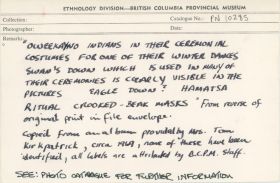 ETHNOLOGY DIVISION—BRITISH COLUMBIA PROVINCIAL MUSEUM
Collection: Catalogue No.: PN 10285
Photographer: Date:
Remarks:
"OWEEKAYNO INDIANS IN THEIR CEREMONIAL
COSTUMES FOR ONE OF THEIR WINTER DANCES
SWAN'S DOWN WHICH IS USED IN MANY OF
THEIR CEREMONIES IS CLEARLY VISIBLE IN THE
PICTURES EAGLE DOWN? HAMATSA
RITUAL CROOKED-BEAK MASKS" From reverse of
original print in file envelope.
Copied from an album provided by Mrs. Tom
Kirkpatrick, circa, none of these have been
identified, all labels are attributed by B.C.P.M. Staff.
SEE: PHOTO CATALOGUE FOR FURTHER INFORMATION